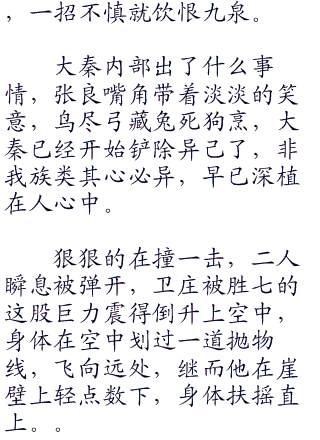 ，一招不慎就饮恨九泉。
大秦内部出了什么事
情，张良嘴角带着淡淡的笑
意，鸟尽弓藏兔死狗烹，大
秦已经开始铲除异己了，非
我族类其心必异，早已深植
在人心中。
狠狠的在撞一击，二人
瞬息被弹开，卫庄被胜七的
这股巨力震得倒升上空中，
身体在空中划过一道抛物
线，飞向远处，继而他在崖
壁上轻点数下，身体扶摇直
上。。